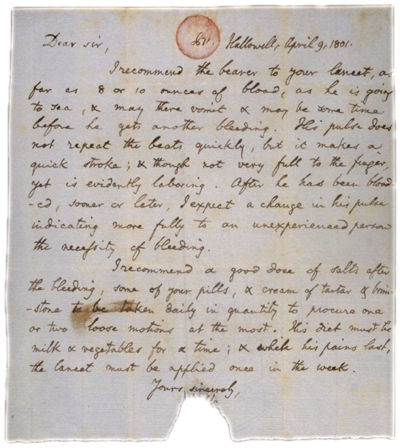 Dear sir, Hallowell, April 9, 1801.
I recommend the bearer to your lancet, as
far as 8 or 10 ounces of blood, as he is going
to sea, & may there vomit & may be some time
before he gets another bleeding. His pulse does
not repeat the beats quickly, but it makes a
quick stroke; & though not very full to the finger,
yet is evidently laboring. After he has been blood
-ed, sooner or later, I expect a change in his pulse
indicating more fully to an unexperienced person
the necessity of bleeding.
I recommend a good dose of salts after
the bleeding, some of your pills, & cream of tartar & brim-
-stone to be taken daily in quantity to procure one
or two loose motions at the most. His diet must be
milk & vegetables for a time; & while his pains last,
the lancet must be applied once in the week.
Yours, sincerely,